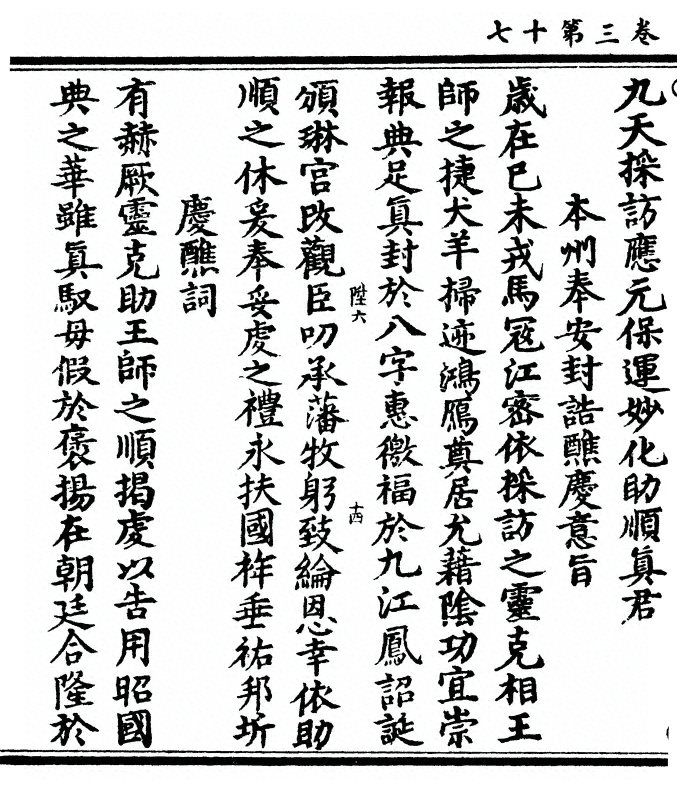 卷三第十七
九天採訪應元保運妙化助順真君
本州奉安封誥醮慶意旨
歲在已未戎馬冦江密依採訪之靈克相王
師之捷犬羊掃迹鴻鴈奠居允藉陰功宜崇
報典足真封於八字惠徼福於九江鳳詔誕
頒琳宫改觀臣叨承藩牧躬致綸恩幸依助
順之休爰奉妥虔之禮永扶國祚垂祐邦圻
慶醮詞
有赫厥靈克助王師之順揭虔以告用昭國
典之華雖真馭毋假於褒揚在朝廷合隆於
陞六
十四